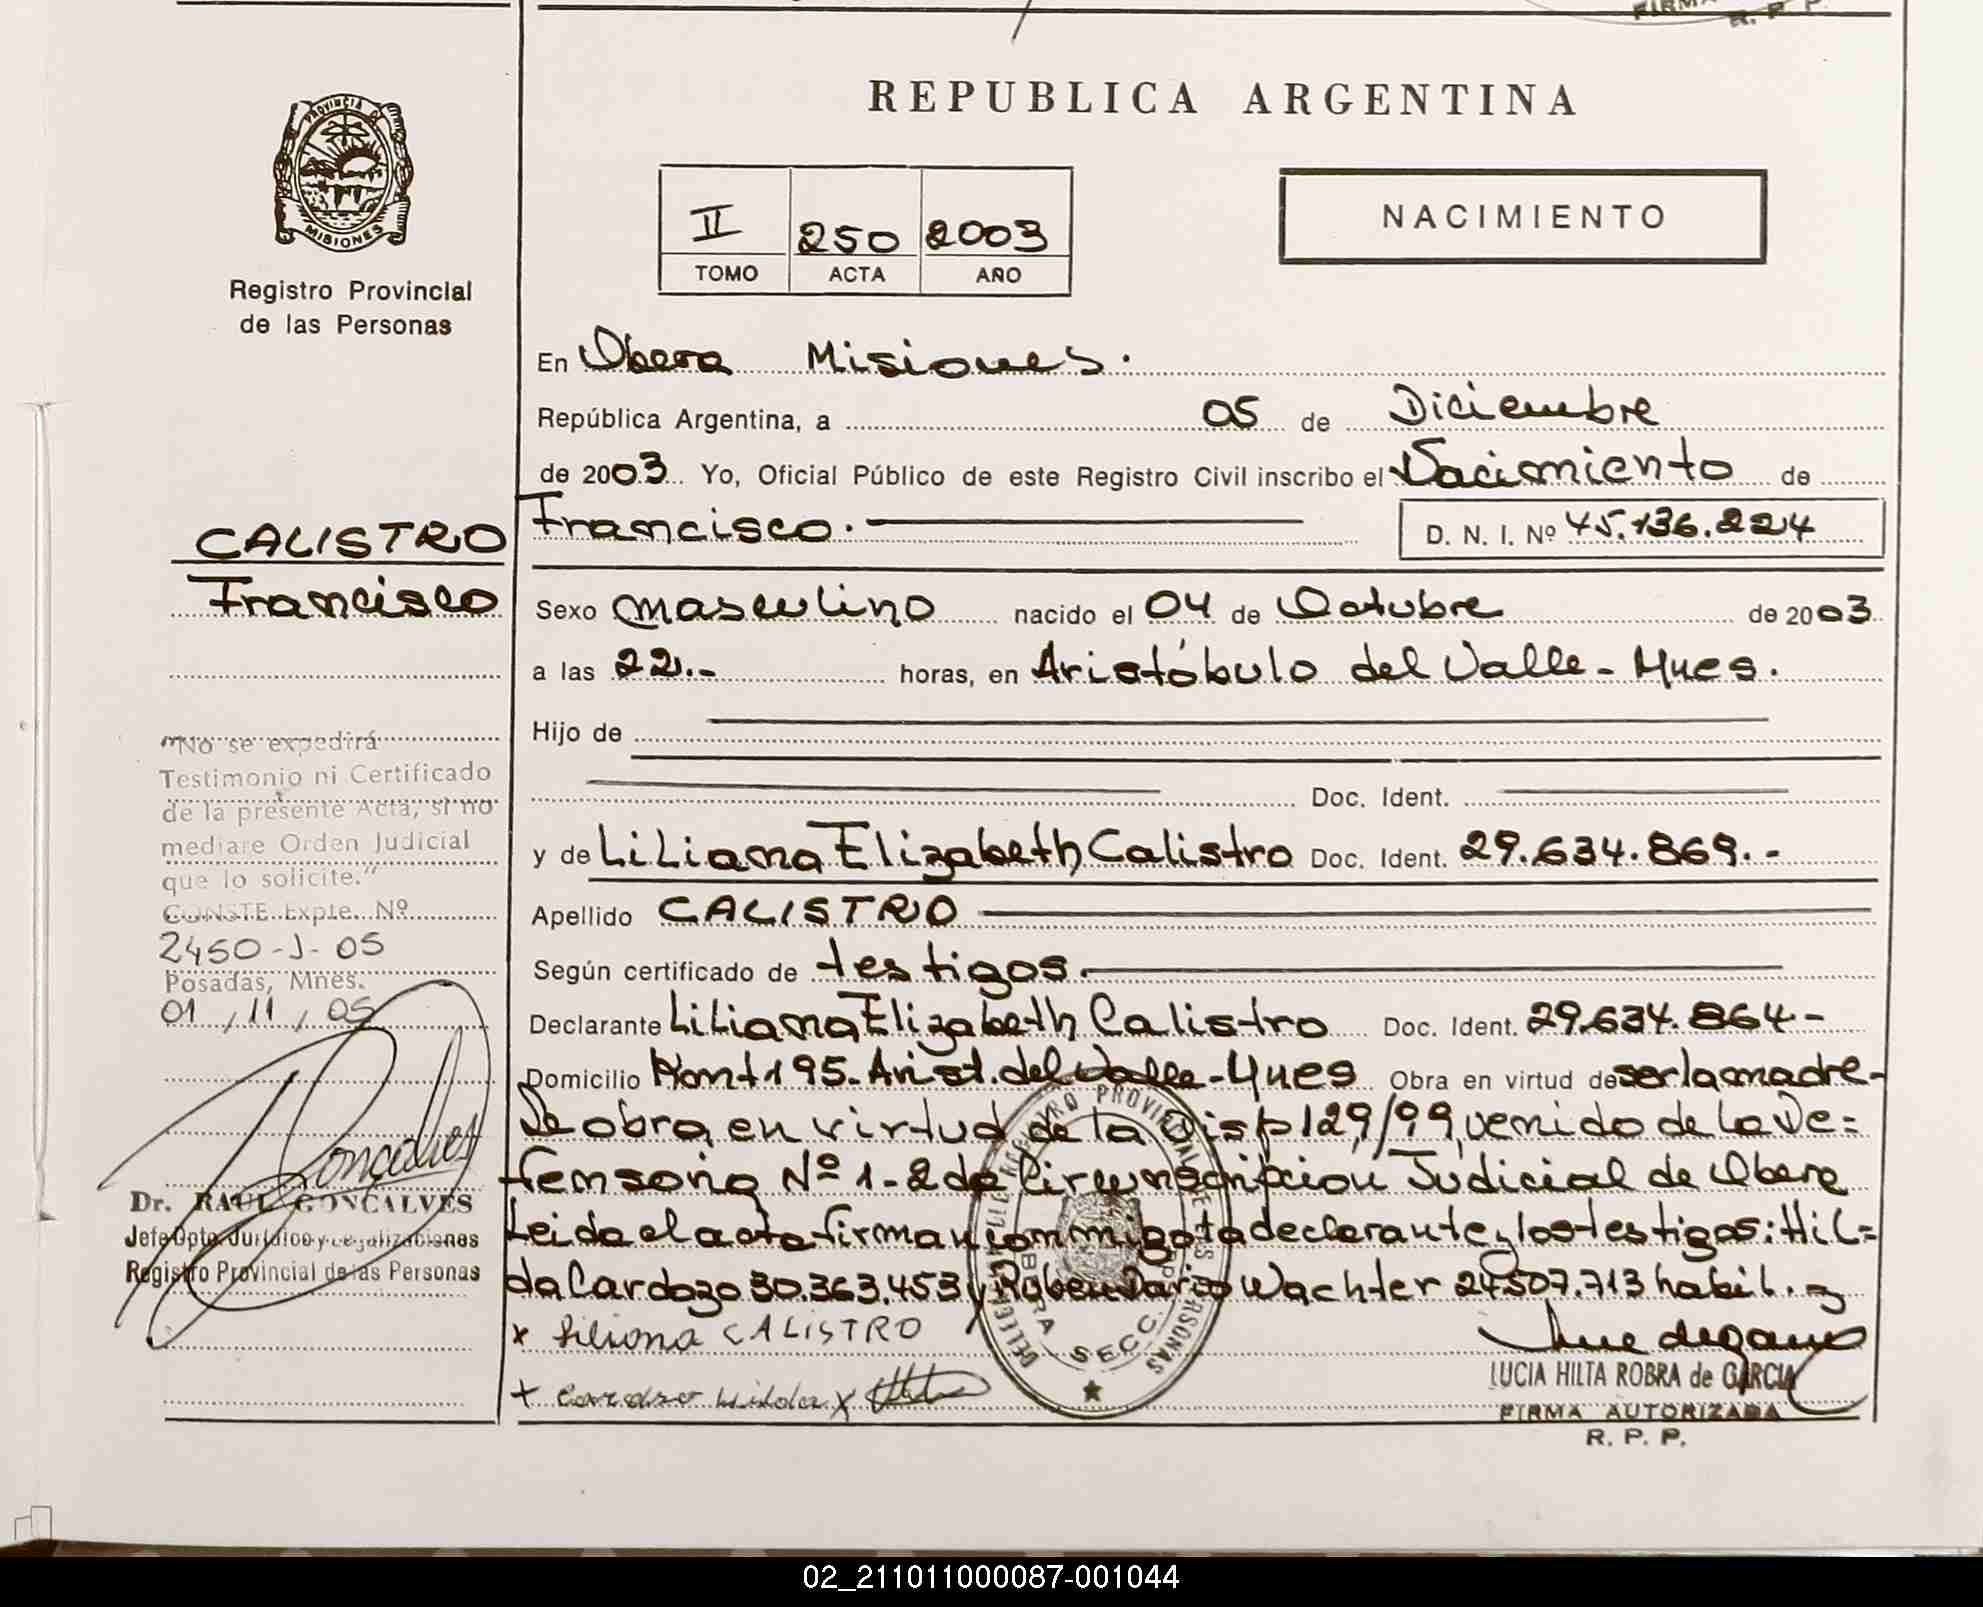 FIRMA
R. P. P.
PROVINCIA DE
MISIONES
Registro Provincial
de las Personas
REPUBLICA ARGENTINA
II 250 2003
TOMO ACTA AÑO
NACIMIENTO
En Obera Misiones.
República Argentina, a 05 de Diciembre
de 2003 Yo, Oficial Público de este Registro Civil inscribo el Nacimiento de
Francisco.
D. N. I. Nº 45.136.224
CALISTRO
Francisco
Sexo masculino nacido el 04 de Octubre de 2003
a las 22.- horas, en Aristóbulo del Valle - Mnes.
Hijo de
Doc. Ident.
y de Liliana Elizabeth Calistro Doc. Ident. 29.634.869.-
Apellido CALISTRO
Según certificado de testigos.
Declarante Liliana Elizabeth Calistro Doc. Ident. 29.634.864-
Domicilio 195- Arist. del Valle - Mnes Obra en virtud de ser la madre-
Se obra en virtud de la Disp 129/99, venido de la De=
fensoria Nº 1-2da Circunscripcion Judicial de Obera
Leida el acta firman conmigo la declarante y los testigos: Hil=
da Cardozo 30.363.453 y Ruben Dario Wachter 24.507.713 habil.
x Liliana CALISTRO
+ Cardozo Hilda x
"No se expedirá
Testimonio ni Certificado
de la presente Acta, si no
mediare Orden Judicial
que lo solicite."
CONSTE Expte. Nº
2450-J-05
Posadas, Mnes.
01, 11, 05
Goncalves
Dr. RAUL GONCALVES
Jefe Dpto. Jurídico y Legalizaciones
Registro Provincial de las Personas
DELEG REGISTRO PROVINCIAL DE LAS PERSONAS
OBERA
SECC.
LUCIA HILTA ROBRA de GARCIA
FIRMA AUTORIZADA
R. P. P.
02_211011000087-001044